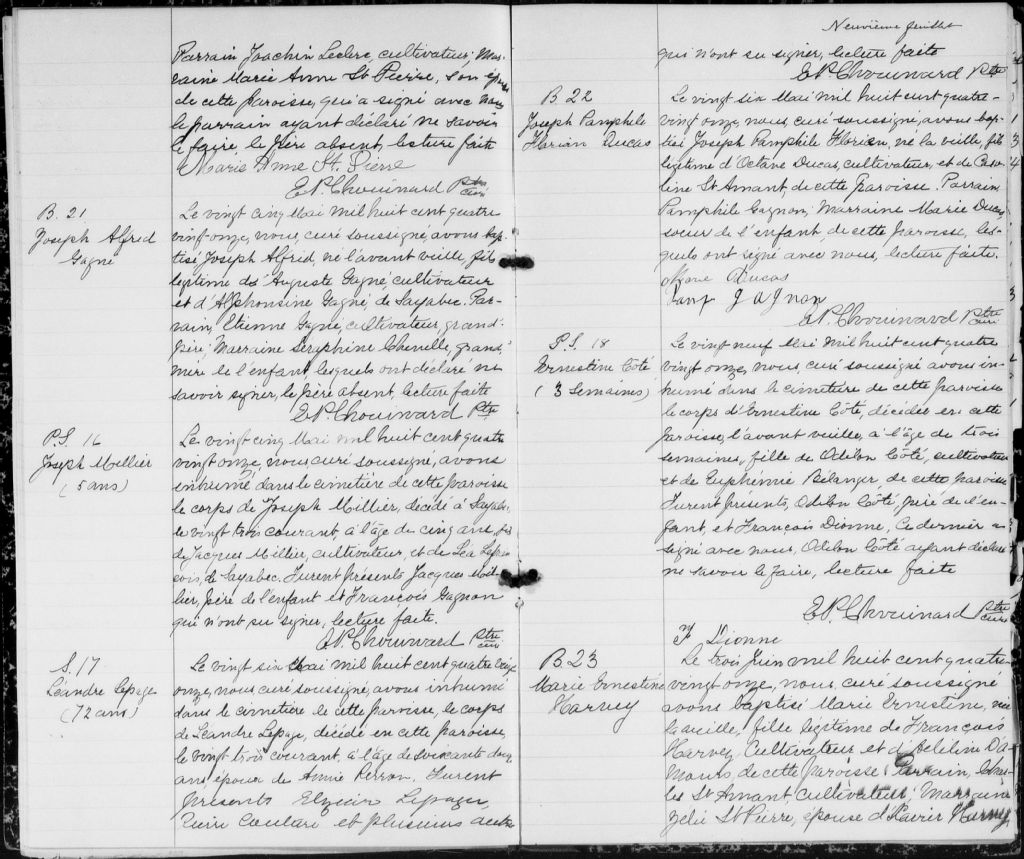 Parrain Joachin Leclerc, cultivateur; Mar-
raine Marie Anne St Pierre, son épouse
de cette paroisse, qui a signé avec nous
le parrain ayant déclaré ne savoir
le faire, le père absent, lecture faite
Marie Anne St. Pierre
E.P. Chouinard Ptre
curé
B. 21
Joseph Alfred
Gagné
Le vingt cinq Mai mil huit cent quatre
vingt-onze, nous, curé soussigné, avons bap-
tisé Joseph Alfred, né l'avant veille, fils
légitime d'Auguste Gagné, cultivateur
et d'Alphonsine Gagné, de Sayabec. Par-
rain, Etienne Gagné, cultivateur, grand-
père; Marraine Séraphine grand'
mère de l'enfant, lesquels ont déclaré ne
savoir signer, le père absent, lecture faite
E.P. Chouinard Ptre
P.S. 16
Joseph Millier
(5 ans)
Le vingt cinq Mai mil huit cent quatre
vingt onze, nous, curé soussigné, avons
inhumé dans le cimetière de cette paroisse
le corps de Joseph Millier, décédé à Sayabec
le vingt trois courant, à l'âge de cinq ans, fils
de Jacques Millier, cultivateur, et de Léa Lefran-
cois, de Sayabec. Furent présents Jacques Mil-
lier, père de l'enfant et François Gagnon
qui n'ont su signer, lecture faite.
E.P. Chouinard Ptre
curé
S. 17
Léandre Lepage
(72 ans)
Le vingt six Mai mil huit cent quatre vingt
onze, nous, curé soussigné, avons inhumé
dans le cimetière de cette paroisse, le corps
de Léandre Lepage, décédé en cette paroisse,
le vingt trois courant, à l'âge de soixante douze
ans, époux de Annie Perron. Furent
présents Elzéar Lepage,
Pierre et plusieurs autres
Neuvième feuillet
qui n'ont su signer, lecture faite
E.P. Chouinard Ptre
B. 22
Joseph Pamphile
Florian Ducas
Le vingt six Mai mil huit cent quatre-
vingt onze, nous, curé soussigné, avons bap-
tisé Joseph Pamphile Florien, né la veille, fils
légitime d'Octave Ducas, cultivateur, et de
line St Amant, de cette paroisse. Parrain
Pamphile Gagnon, Marraine Marie Ducas,
soeur de l'enfant, de cette paroisse, les-
quels ont signé avec nous, lecture faite.
Marie Ducas
Panf gagnon
E.P. Chouinard Ptre
curé
P.S. 18
Ernestine Côté
(3 Semaines)
Le vingt neuf Mai mil huit cent quatre
vingt onze, nous curé soussigné avons in-
humé dans le cimetière de cette paroisse
le corps d'Ernestine Côté, décédée en cette
paroisse, l'avant veille, à l'âge de trois
semaines, fille de Odilon Côté, cultivateur
et de Euphémie Bélanger, de cette paroisse
Furent présents, Odilon Côté, père de l'en-
fant, et François Dionne, Ce dernier a
signé avec nous, Odilon Côté ayant déclaré
ne savoir le faire, lecture faite
E.P. Chouinard Ptre
curé
F Dionne
B. 23
Marie Ernestine
Harvey
Le trois Juin mil huit cent quatre-
vingt onze, nous, curé soussigné
avons baptisé Marie Ernestine, née
la veille, fille légitime de François
Harvey, Cultivateur et d'Adeline Da-
mours, de cette paroisse. Parrain, Char-
les St Amant, cultivateur, Marraine
Zélie St Pierre, épouse d'Xavier Harvey